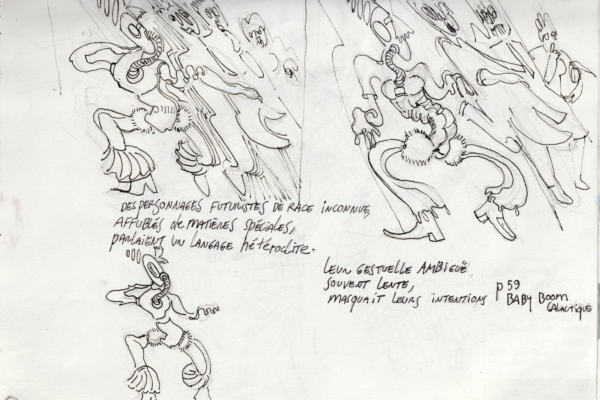 DES PERSONNAGES FUTURISTES DE RACE INCONNUE,
AFFUBLÉS de MATIÈRES SPÉCIALES,
PARLAIENT UN LANGAGE hétéROCLITE.
LEUR GESTUELLE AMBIGUË
SOUVENT LENTE,
MASQUAIT LEURS INTENTIONS
p 59
BABY BOOM
GALACTIQUE